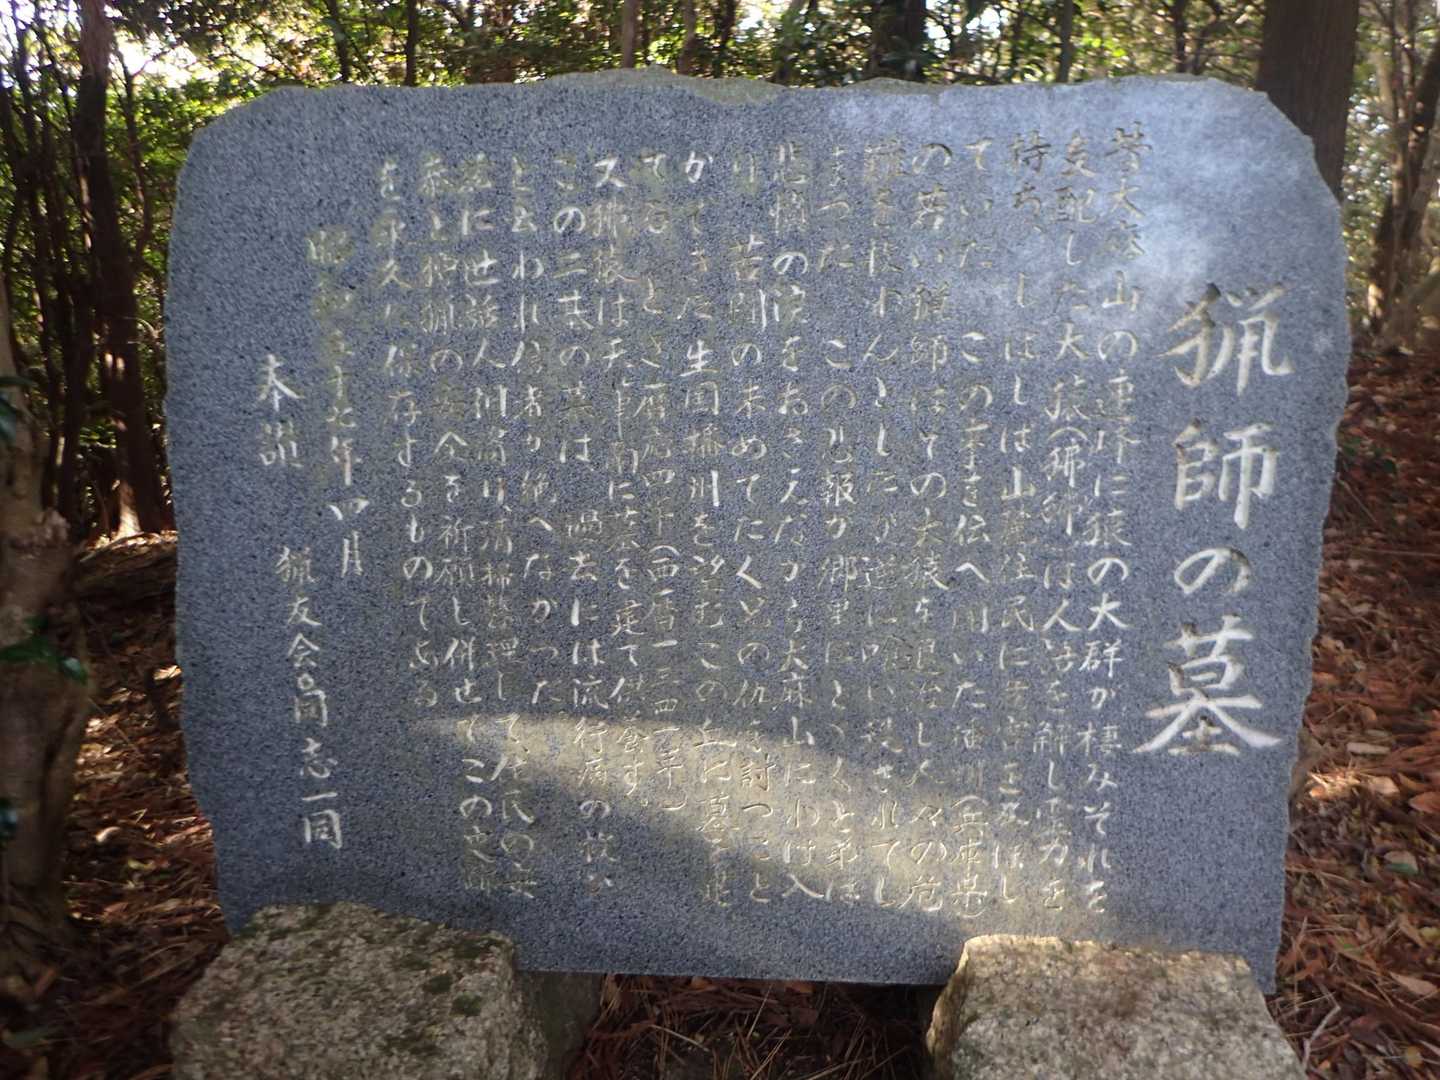 猟師の墓
大麻山の連峰に猿の大群が棲みそれを
支配した大猿(狒狒)は人語を解し霊力を
持ち、しばしば山麓住民に危害を及ぼし
ていた この事を伝へ聞いた播州(兵庫県)
の若い猟師はその大猿を退治し人々の危
難を救わんとしたが逆に喰い殺されてし
まった この悲報が郷里にとゞくと弟は
悲憤の涙をおさえながら大麻山にわけ入
り 苦闘の末めでたく兄の仇を討つこと
ができた 生国播州を望むこの丘に墓を建
て とき暦応四年(西暦一三四一年)
ス狒猿は天 南に墓を建て供養す。
この二基の墓は 過去には流行病の
と云われ信者が絶へなかった
に世話人川 清掃整理して、住民の安
泰と狩猟の安全を祈願し併せてこの史跡
を永久に保存するものである
昭和五十七年四月
奉讃 猟友会 同志一同